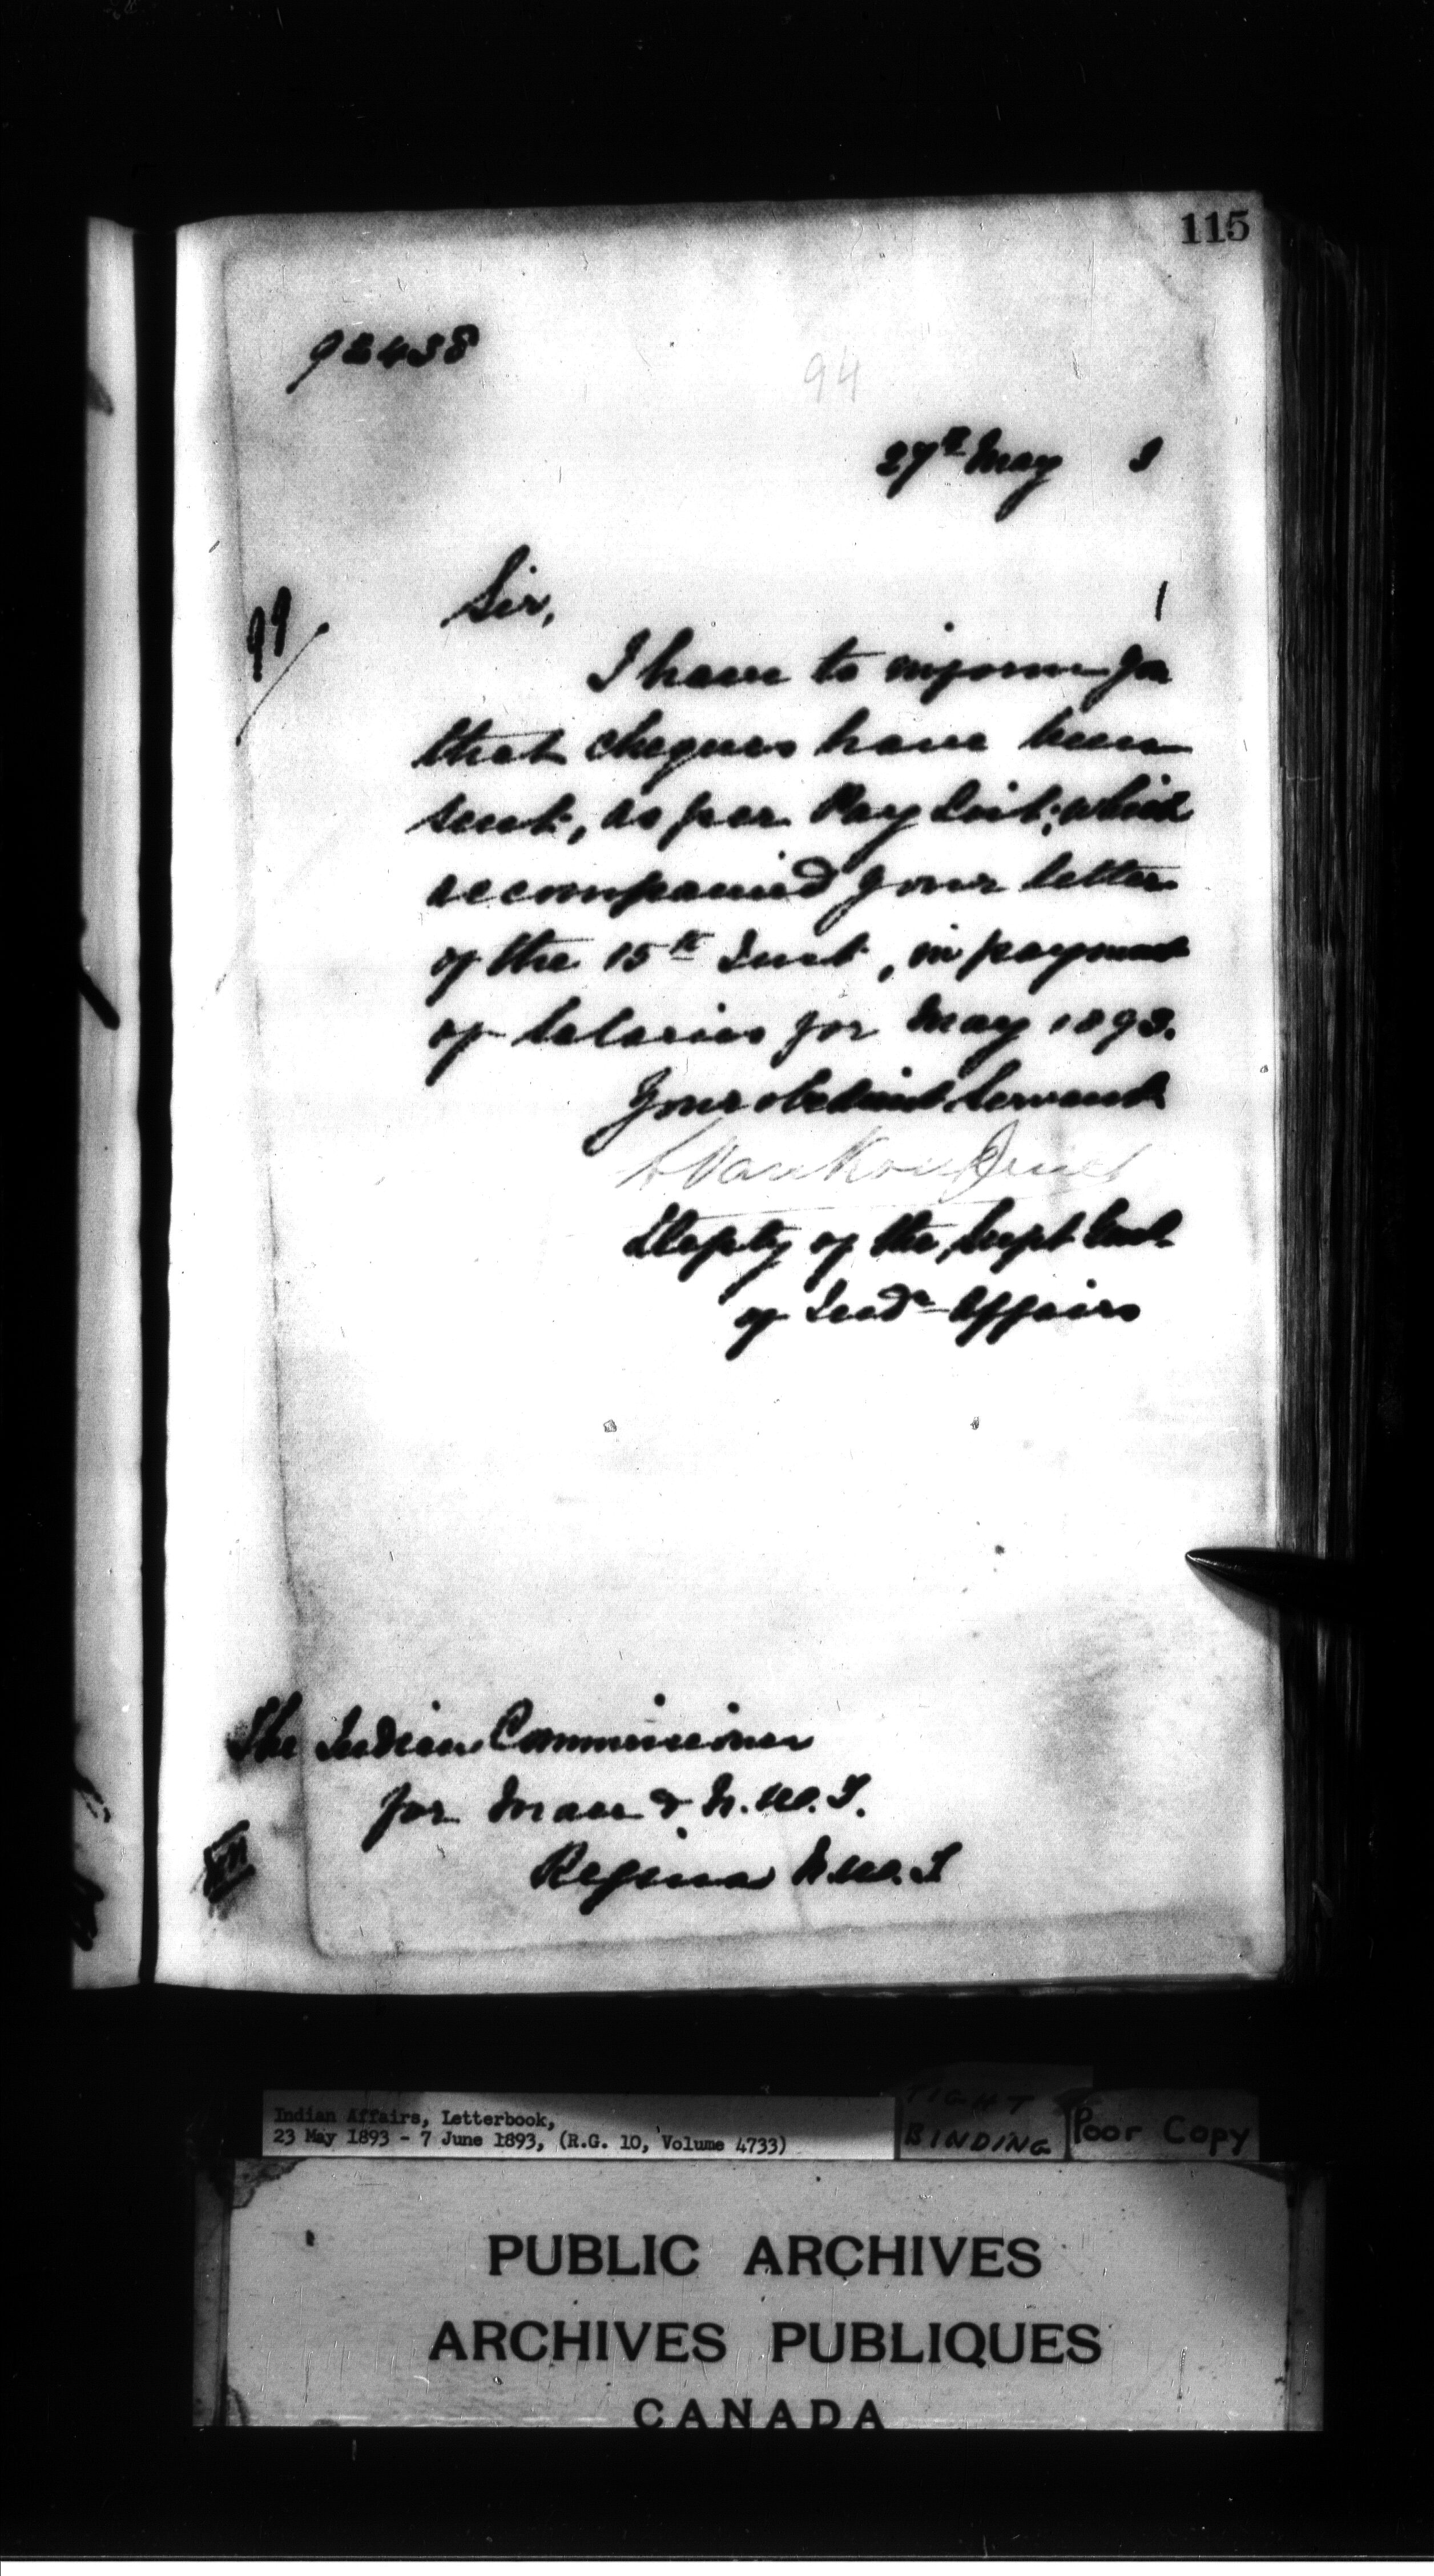 115
92458
94
27th May 3
Sir,
I have to inform you
that cheques have been
sent, as per Pay List, which
accompanied your letter
of the 15th Inst, in payment
of Salaries for May 1893.
Your obedient Servant
L Vankoughnet
Deputy of the Supt Genl
of Indn Affairs
The Indian Commissioner
for Man & N.W.T.
Regina N.W.T
Indian Affairs, Letterbook,
23 May 1893 - 7 June 1893, (R.G. 10, Volume 4733)
TIGHT
BINDING
Poor Copy
PUBLIC ARCHIVES
ARCHIVES PUBLIQUES
CANADA